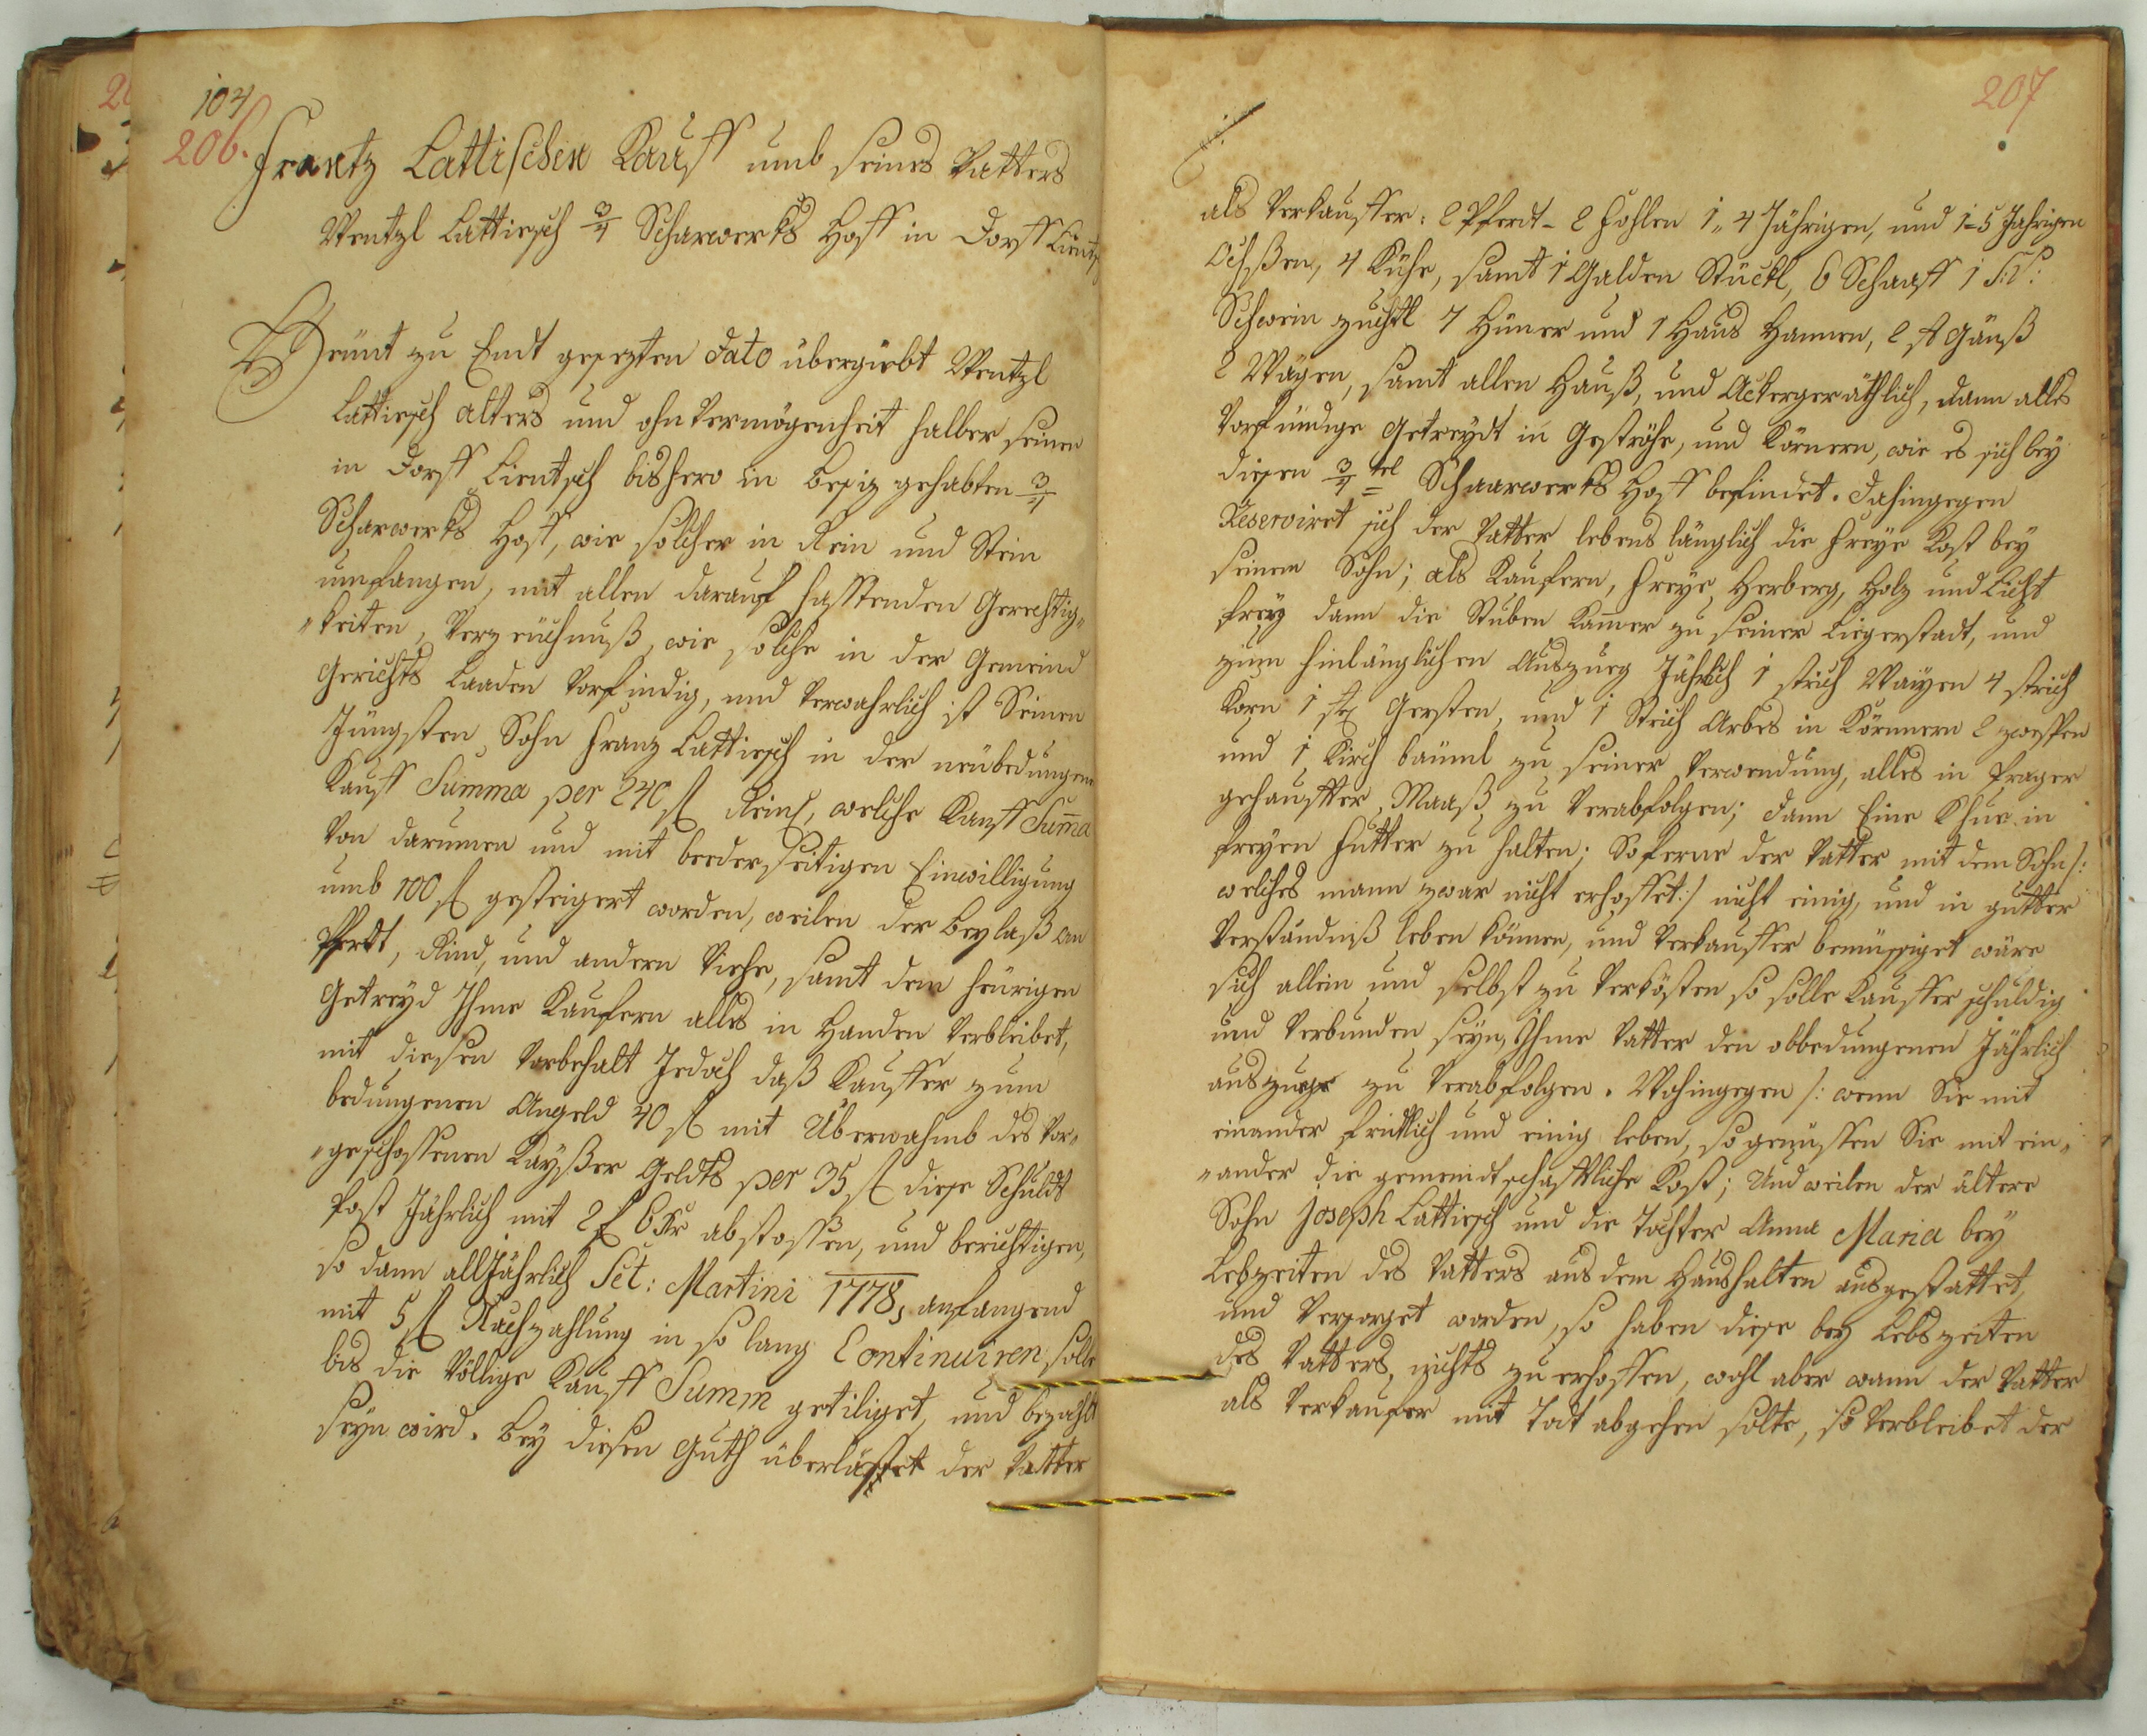 104
206.
Frantz Lattischen Kauff umb seines Vatters
Wentzl Lattiesch 3/4 Scharwerks Hoff in Dorff Lientsch
Heünt zu Endt gesezten Dato übergiebt Wentzl
Lattiesch alters und ohnvermögenheit halber seinen
in Dorff Lientsch bishero in besiz gehabten 3/4
Scharwerks Hoff, wie solcher in Rein und Stein
umfangen, mit allen darauf hafftenden Gerechtig„
„keiten, Verzeüchnuß, wie solche in der Gemeind
Gerichts Laaden Vorfindig, und Verwahrlich ist Seinen
Jüngsten Sohn Franz Lattiesch in der neübedungenen
Kauff Summa per 240 fl Reinl, welche Kauff Summa
Von darumen und mit beederseitigen Einwilligung
umb 100 fl gesteigert worden, weilen der Beylaß an
Pferdt, Rind, und andern Viehe, samt dem heürigen
Getreyd Ihme Kaufern alles in Handen Verbleibet,
mit diesen Vorbehalt Jedoch daß Kauffer zum
bedungenen Angeld 40 fl mit Überwahmb des Vor„
„geschossenen Kayßer Geldts per 35 fl diese Schuldt
Post Jährlich mit 2 f 6 Kr abstossen, und berichtigen,
so dann all Jährlich Sct: Martini 1778, anfangend
mit 5 fl Nachzahlung in so lang Continuiren solle
bis die Völlige Kauff Summ getiliget, und bezahlt
seyn wird. Bey diesen Guth überlässet der Vatter
207
als Verkauffer: 2 Pferdt - 2 Fohlen 1„ 4 Jährigen, und 1=5 Jahrigen
Ochßen, 4 Kühe, samt 1 Galden Stückl, 6 Schaaff 1 S:V:
Schwein zuchtl 7 Hüner und 1 Haus Hannen, 2 st Gänß
2 Wägen, samt allen Hauß, und Ackergeräthlich, dann alles
Vorfündige Getreydt in Geströhe, und Körnern, wie es sich bey
diesen 3/4 tel Schaarwerks Hoff befindet. Dahingegen
Reserviret sich der Vatter lebens länglich die Freye Kost bey
seinem Sohn; als Kaufern, Freye Herberg, Holz und Licht
frey dann die Stuben Kamer zu seiner Liegerstadt, und
zum hinlänglichen Auszueg Jährlich 1 strich Waizen 4 strich
Korn 1 str Gersten, und 1 Strich Arbes in Körnnern 2 zwesken
und 1 Kirsch bäuml zu seiner Verwendung, alles in Prager
gehauffter Maaß zu Verabfolgen; dann Eine Khue in
freyen Futter zu halten; Soferne der Vatter mit dem Sohn /:
welches mann zwar nicht erhoffet :/ nicht einig, und in gutter
Verständniß leben können, und Verkauffer bemüssiget wäre
sich allein und selbst zu Verkösten so solle Kauffer schuldig
und Verbunden seyn, Ihme Vatter den obbedungenen Jährlich
auszuege zu Verabfolgen. Wohingegen /: wenn Sie mit
einander fridlich und einig leben, so genüssen Sie mit ein„
„ander die gemeindschafftliche Kost; Und weilen der ältere
Sohn Joseph Lattiesch und die Tochter Anna Maria bey
Lebzeiten des Vatters aus dem Haushalten ausgestattet,
und Versorget worden, so haben diese bey Lebszeiten
des Vatters, nichts zu erhoffen, wohl aber wann der Vatter
als Verkaufer mit Todt abgehen solte, so Verbleibet der